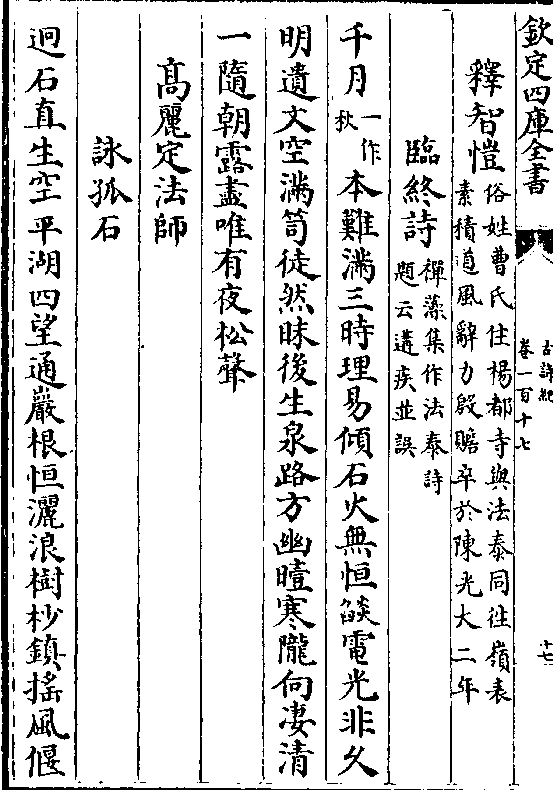 欽定四庫全書
古詩紀
卷一百十七
十七
釋智愷
俗姓曹氏住楊都寺與法泰同往嶺表
素積道風辭力殷贍卒於陳光大二年
臨終詩
禪藻集作法泰詩
題云遘疾並誤
千月一作秋本難滿三時理易傾石火無恒燄電光非久
明遺文空滿笥徒然昧後生泉路方幽曀寒隴向淒清
一隨朝露盡唯有夜松聲
高麗定法師
詠孤石
迥石直生空平湖四望通巖根恒灑浪樹杪鎮搖風偃